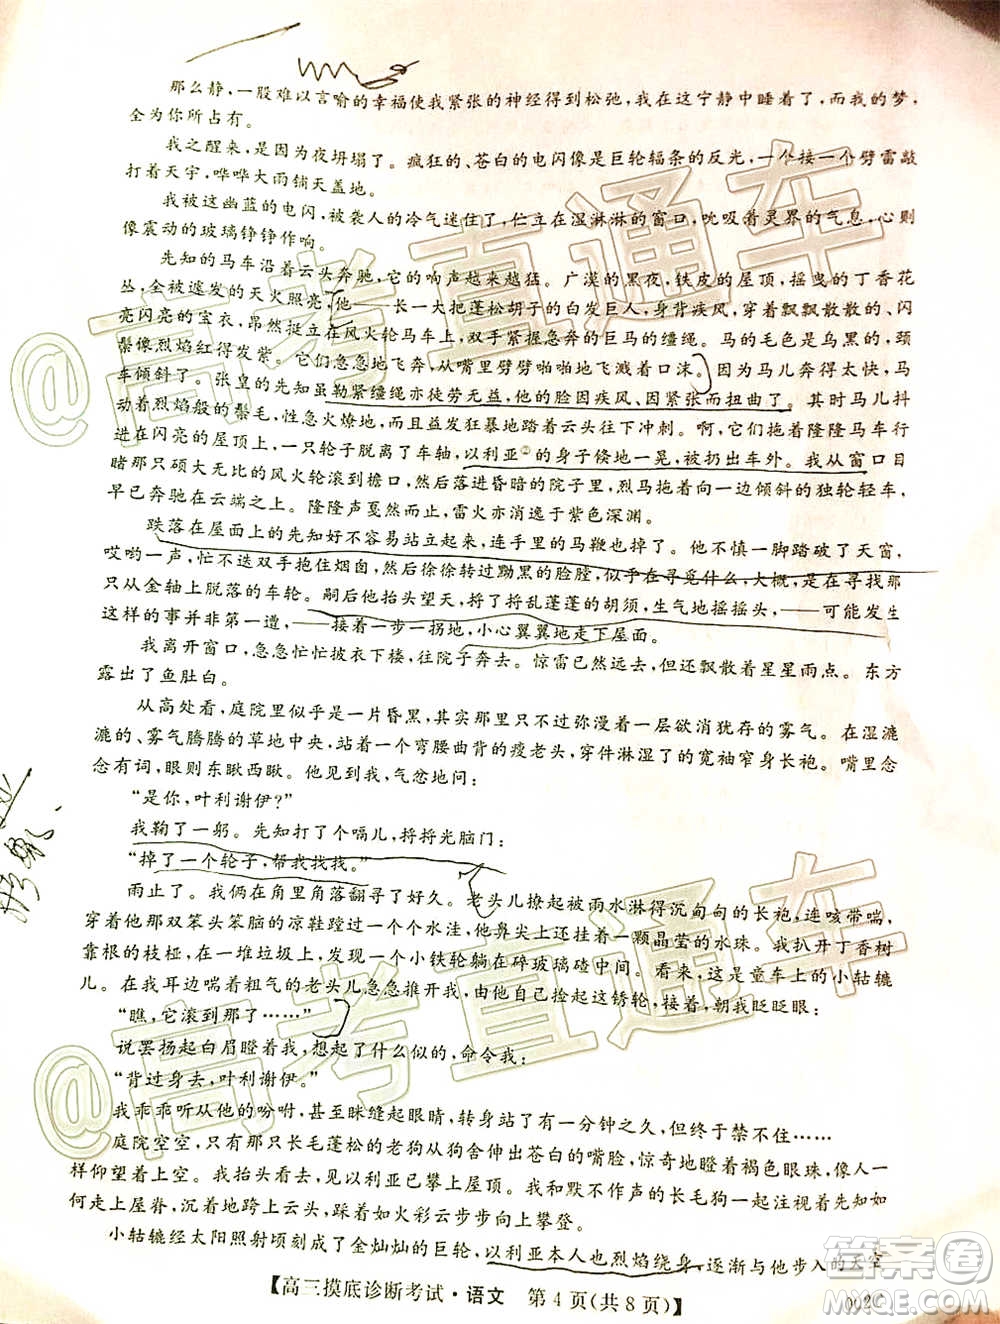 那么静,一股难以言喻的幸福使我紧张的神经得到松弛,我在这宁静中睡着了,而我的梦,
全为你所占有。
我之醒来,是因为夜坍塌了。疯狂的、苍白的电闪像是巨轮辐条的反光,一个接一个劈雷敲
打着天宇,哗哗大雨铺天盖地。
我被这幽蓝的电闪,被袭人的冷气迷住了,伫立在湿淋淋的窗口,吮吸着灵界的气息,心则
像震动的玻璃铮铮作响。
先知的马车沿着云头奔驰,它的响声越来越猛。广漠的黑夜,铁皮的屋顶,摇曳的丁香花
丛,全被遽发的天火照亮,他——一长一大把蓬松胡子的白发巨人,身背疾风,穿着飘飘散散的、闪
亮闪亮的宝衣,昂然挺立在风火轮马车上,双手紧握急奔的巨马的缰绳。马的毛色是乌黑的,
鬃像烈焰红得发紫。它们急急地飞奔,从嘴里劈劈啪啪地飞溅着口沫。因为马儿奔得太快,
车倾斜了。张皇的先知虽勒紧缰绳亦徒劳无益,他的脸因疾风、因紧张而扭曲了。其时马儿抖
动着烈焰般的鬃毛,性急火燎地,越发狂暴地踏着云头往下冲刺。啊,有如推着隆隆马车行
进在闪亮的屋顶上,一只轮子脱离了车轴,以利亚②的身子倏地一晃,被扔出车外。我从窗口目
睹那只硕大无比的风火轮滚到檐口,然后跌进昏暗的院子里,烈马拖着一边倾斜的独轮车,
早已奔驰在云端之上。隆隆声戛然而止,雷火亦消逸于紫色深渊。
跌落在屋面上的先知好不容易站立起来,连手里的马鞭也掉了。他不慎一脚踏破了天窗,
哎哟一声,忙不迭双手抱住烟囱,然后徐徐转过黝黑的脸膛,似乎在寻觅什么,大概,是在寻找那
只从金轴上脱落的车轮。嗣后他抬头望天,捋了捋乱蓬蓬的胡须,生气地摇摇头,——可能发生
这样的事并非第一遭,——接着一步一拐地,小心翼翼地走下屋面。
我离开窗口,急急忙忙披衣下楼,往院子奔去。惊雷已然远去,但还飘散着星星雨点。东方
露出了鱼肚白。
从高处看,庭院里似乎是一片昏黑,其实那里只不过弥漫着一层欲消犹存的雾气。在湿漉
漉的、雾气腾腾的草地中央,站着一个弯腰曲背的瘦老头,穿件淋湿了的宽袖窄身长袍。嘴里念
念有词,眼则东瞅西瞅。他见到我,气忿地问:
“是你,叶利谢伊?”
我鞠了一躬。先知打了个嗝儿,捋捋光脑门:
“掉了一个轮子,帮我找找。”
雨止了。我俩在角里角落翻寻了好久。老头儿撩起被雨水淋得沉甸甸的长袍,连咳带喘,
穿着他那双笨头笨脑的凉鞋蹚过一个个水洼,他鼻尖上还挂着一颗晶莹的水珠。我扒开丁香树
靠根的枝桠,在一堆垃圾上,发现一个小铁轮躺在碎玻璃碴中间。看来,这是童车上的小轱辘
儿。在我耳边喘着粗气的老头儿急急推开我,由他自己捡起这锈轮,接着,朝我眨眨眼:
“瞧,它滚到那了……”
说罢扬起白眉瞪着我,想起了什么似的,命令我:
“背过身去,叶利谢伊。”
我乖乖听从他的吩咐,甚至眯缝起眼睛,转身站了有一分钟之久,但终于禁不住……
庭院空空,只有那只长毛蓬松的老狗从狗舍伸出苍白的嘴脸,惊奇地瞪着褐色眼珠,像人一
样仰望着上空。我抬头看去,只见以利亚已攀上屋顶。我和默不作声的长毛狗一起注视着先知如
何走上屋脊,沉着地跨上云头,踩着如火彩云步步向上攀登。
小轱辘经太阳照射顷刻成了金灿灿的巨轮,以利亚本人也烈焰绕身,逐渐与他步入的天空
【高三摸底诊断考试·语文 第4页(共8页)】
002C
@高考直通车
@高考直通车
答案圈
MXQE.COM